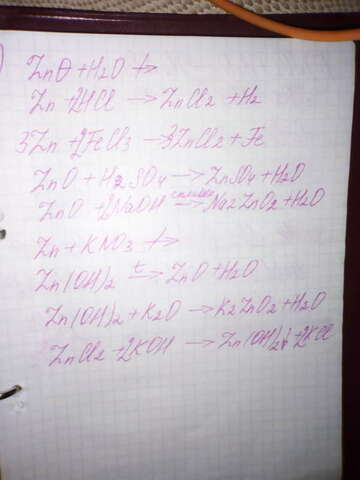 ZnO + H2O ↛
Zn + 2HCl → ZnCl2 + H2
3Zn + 2FeCl3 → 3ZnCl2 + Fe
ZnO + H2SO4 → ZnSO4 + H2O
ZnO + 2NaOH → Na2ZnO2 + H2O
Zn + KNO3 ↛
Zn(OH)2 t→ ZnO + H2O
Zn(OH)2 + K2O → K2ZnO2 + H2O
ZnCl2 + 2KOH → Zn(OH)2↓ + 2KCl